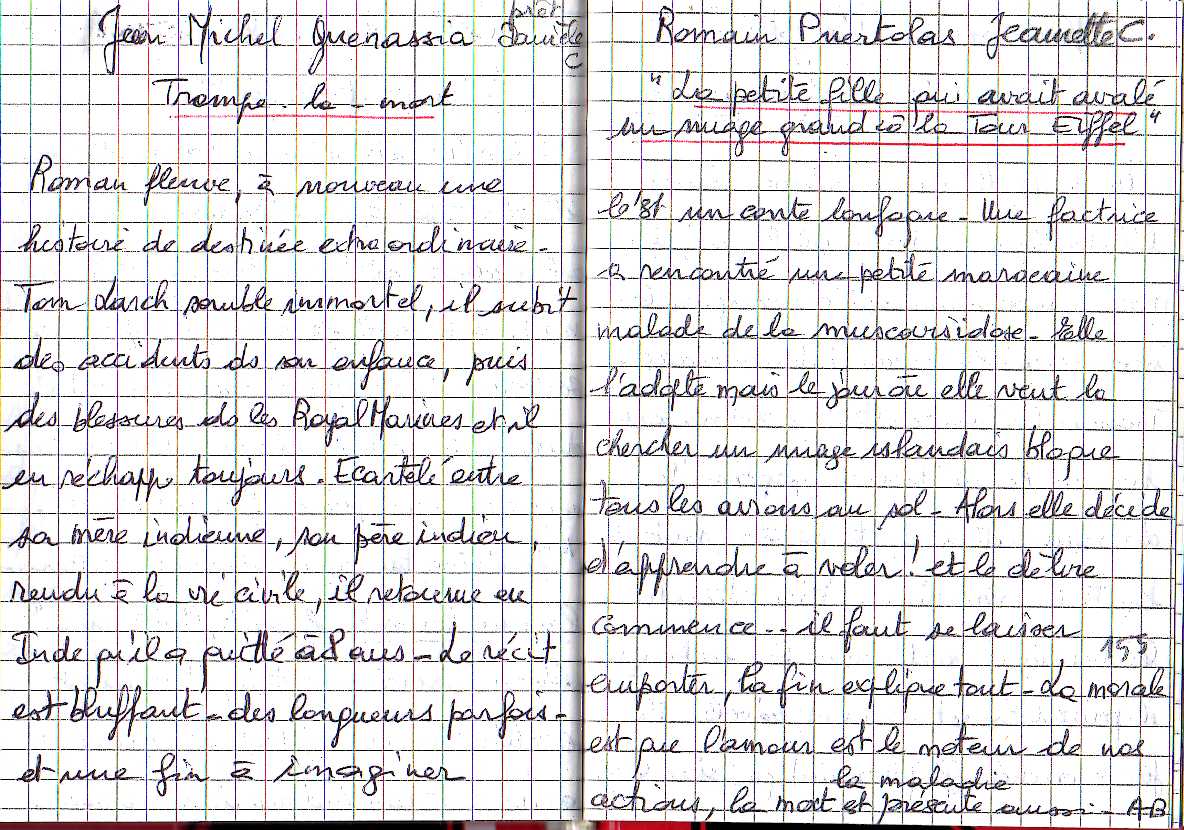 prêt
Jean Michel Guenassia Danièle
C
Trompe-la-mort
Roman fleuve, à nouveau une
histoire de destinée extraordinaire -
Tom Larch semble immortel, il subit
des accidents ds son enfance, puis
des blessures ds les Royal Marines et il
en réchapp toujours. Ecartelé entre
sa mère indienne, son père indien,
rendu à la vie civile, il retourne en
Inde qu'il a quitté à 8 ans - Le récit
est bluffant - des longueurs parfois -
et une fin à imaginer
Romain Puertolas Jeannette C.
"La petite fille qui avait avalé
un nuage grand cô la Tour Eiffel"
C'est un conte loufoque - Une factrice
a rencontré une petite marocaine
malade de la mucovisidose - Elle
l'adopte mais le jour où elle veut la
chercher un nuage islandais bloque
tous les avions au sol - Alors elle décide
d'apprendre à voler ! et le délire
commence .. il faut se laisser
155
emporter, la fin explique tout - La morale
est que l'amour est le moteur de nos
la maladie
actions, la mort et présente aussi - AB